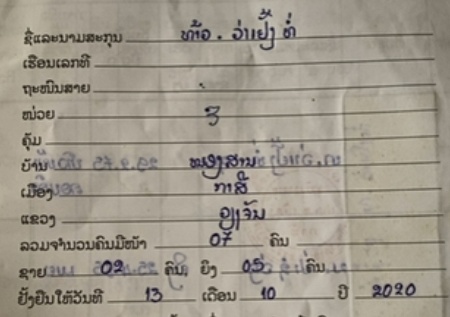 ຊື່ແລະນາມສະກຸນ ທ້າວ . ວ່າເຢັ້ງ ທໍ່
ເຮືອນເລກທີ
ຖະໜົນສາຍ
ໜ່ວຍ 3
ຄຸ້ມ
ບ້ານ ໜອງສານ
ເມືອງ ກາສີ
ແຂວງ ວຽງຈັນ
ລວມຈຳນວນຄົນມີໜ້າ 07 ຄົນ
ຊາຍ 02 ຄົນ, ຍິງ 05 ຄົນ
ຢັ້ງຢືນໃຫ້ວັນທີ 13 ເດືອນ 10 ປີ 2020